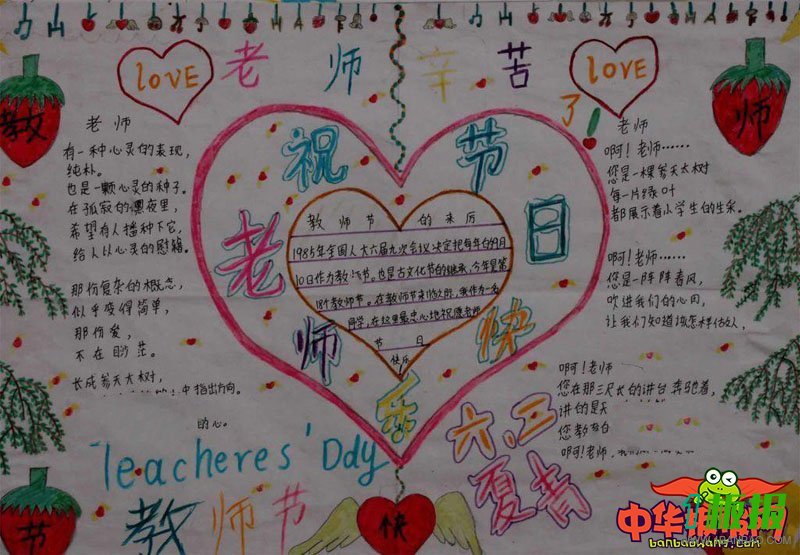 love
老师辛苦了!
love
教
师
祝老师节日快乐
老师
有一种心灵的表现,
纯朴。
也是一颗心灵的种子。
在孤寂的黑夜里,
希望有人播种下它。
给人以心灵的慰籍。
那份复杂的概念,
似乎变得简单,
那份爱,
不在的茫。
长成参天大树,
中指出方向。
的心。
教师节的来历
1985年全国人大六届九次会议决定把每年白9月
10日作为教师节。也是古文化节的继承,今年是第
18个教师节。在教师节来临之前,我作为一名
同学,在这里最忠心地祝愿老师
节日
快乐
老师
啊!老师……
您是一棵参天大树
每一片绿叶
都展示着小学生的生采。
啊!老师……
您是一阵阵春风,
吹进我们的心田,
让我们知道该怎样做人,
啊!老师
您在那三尺长的讲台奔驰着,
讲的是天
您教节白
啊!老师,
Teacheres' Day
教师节
节
快
六、三
夏青
中华板报网
banbaowang.com